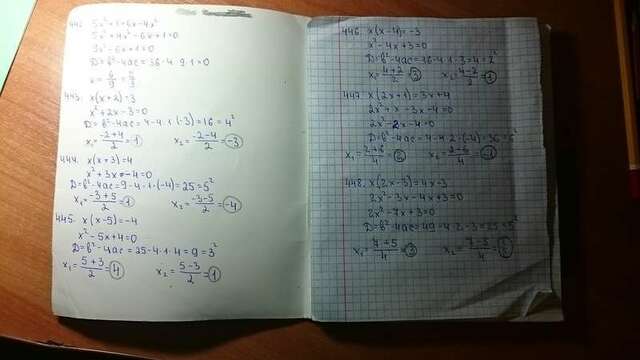 5x²+1=6x-4x²
9x²-6x+1=0
D=b²-4ac=36-4·9·1=0
443. x(x+2)=3
x²+2x-3=0
D=b²-4ac=4-4·1·(-3)=16=4²
x₁=(-2+4)/2=1 x₂=(-2-4)/2=-3
444. x(x+3)=4
x²+3x-4=0
D=b²-4ac=9-4·1·(-4)=25=5²
x₁=(-3+5)/2=1 x₂=(-3-5)/2=-4
445. x(x-5)=-4
x²-5x+4=0
D=b²-4ac=25-4·1·4=9=3²
x₁=(5+3)/2=4 x₂=(5-3)/2=1
446. x(x-4)=-3
x²-4x+3=0
D=b²-4ac=16-4·1·3=4=2²
x₁=(4+2)/2=3 x₂=(4-2)/2=1
447. x(2x+1)=3x+4
2x²+x-3x-4=0
2x²-2x-4=0
D=b²-4ac=4-4·2·(-4)=36=6²
x₁=(2+6)/4=2 x₂=(2-6)/4=-1
448. x(2x-3)=4x-3
2x²-3x-4x+3=0
2x²-7x+3=0
D=b²-4ac=49-4·2·3=25=5²
x₁=(7+5)/4=3